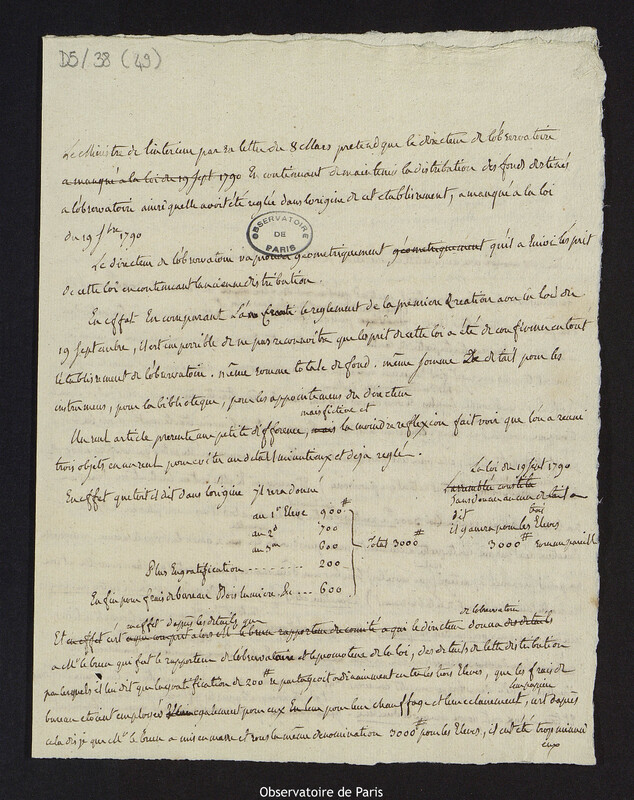 D5/38 (49)
Le Ministre de l'interieur par sa lettre du 8 Mars pretend que le directeur de l'observatoire
a manqué à la loi du 19 Sept 1790 En continuant de maintenir la distribution des fonds destinés
a l'observatoire ainsi qu'elle avoit été reglée dans l'origine de cet etablissement, a manqué à la loi
du 19 7bre 1790
OBSERVATOIRE
DE
PARIS
Le directeur de l'observatoire va prouver géometriquement géometriquement qu'il a suivi l'esprit
de cette loi en continuant l'ancienne distribution.
En effet En comparant le reglement de la premiere Creation avec la loi du
19 septembre, il est impossible de ne pas reconnoitre que l'esprit de cette loi a été de confirmer en tout
l'etablissement de l'observatoire. même somme totale de fond. même somme de detail pour les
instrumens, pour la bibliotèque, pour les appointemens du directeur
mais fictive et
Un seul article presente une petite difference, mais la moindre reflexion fait voir que l'on a reuni
trois objets en un seul pour eviter un detail minutieux et deja reglé.
La loi du 19 Sept 1790
sans donner aucun detail
dit
il y aura pour les Eleves
3000# somme pareille
En effet que voit-il dit dans l'origine il sera donné
au 1er Eleve 900#
au 2d 700
au 3me 600
Total 3000#
Plus En gratification ........ 200
Enfin pour frais de bureau Bois lumiere &c ... 600
en effet d'après les details que
de l'observatoire
Et en effet c'est a qui le directeur donna des details
a Mr le brun qui fut le rapporteur de l'observatoire et le promoteur de la loi, des details de cette distribution
par lesquels il lui dit que la gratification de 200# se partageoit ordinairement entre les trois Eleves, que les frais de
bureau etoient employés egalement pour eux En leur papier pour leur chauffage et leur eclairement, c'est d'après
cela dis je que Mr le brun a mis en masse et sous la même denomination 3000# pour les Eleves, il eut été trop minutieux
Observatoire de Paris